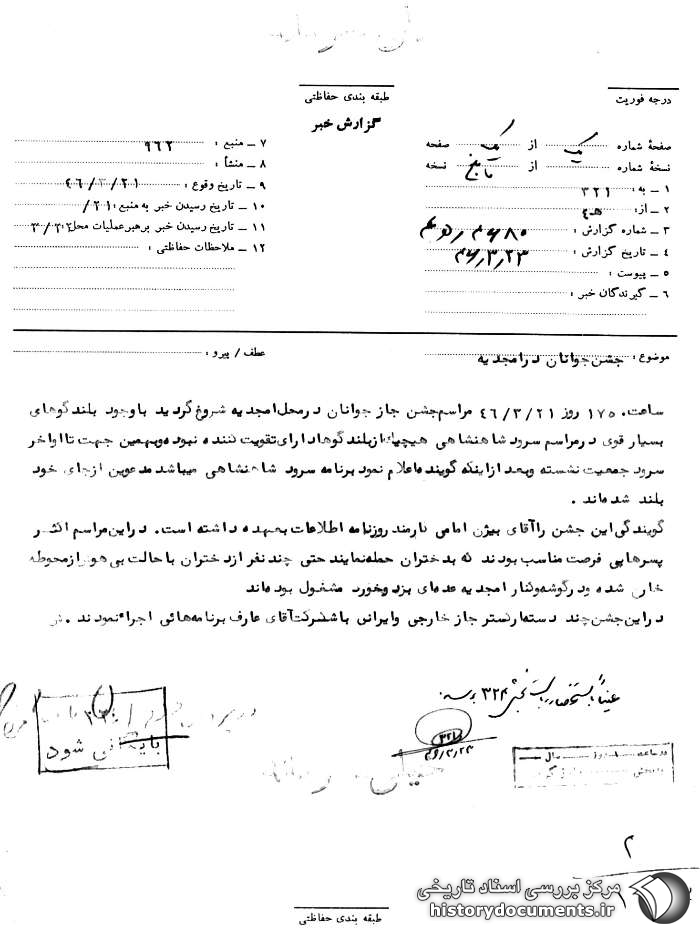 طبقه بندی حفاظتی
درجه فوریت
گزارش خبر
صفحهٔ شماره یک از یک صفحه
نسخهٔ شماره از پنج نسخه
۱ ـ به : ۳۲۱
۲ ـ از: ۴ه
۳ ـ شماره گزارش :
۴ ـ تاریخ گزارش : ۴۶/۳/۲۳
۵ ـ پیوست :
۶ ـ گیرندگان خبر :
۷ ـ منبع : ۹۶۲
۸ ـ منشأ :
۹ ـ تاریخ وقوع : ۴۶/۳/۲۱
۱۰ ـ تاریخ رسیدن خبر به منبع : ۲۱/
۱۱ ـ تاریخ رسیدن خبر برهبر عملیات محل:
۱۲ ـ ملاحظات حفاظتی :
موضوع : جشن جوانان در امجدیه
عطف / پیرو :
ساعت ۱۷۵۰ روز ۴۶/۳/۲۱ مراسم جشن جاز جوانان در محل امجدیه شروع گردید با وجود بلندگوهای
بسیار قوی در مراسم سرود شاهنشاهی هیچیک از بلندگوها دارای تقویت کننده نبوده و بهمین جهت تا اواخر
سرود جمعیت نشسته و بعد از اینکه گوینده اعلام نمود برنامه سرود شاهنشاهی میباشد مدعوین از جای خود
بلند شدهاند .
گویندگی این جشن را آقای بیژن امامی کارمند روزنامه اطلاعات بعهده داشته است. در این مراسم اکثر
پسرها پی فرصت مناسب بودند که به دختران حمله نمایند حتی چند نفر از دختران با حالت بی هوش از محوطه
خارج شده و در گوشه و کنار امجدیه عدهای بزد و خورد مشغول بودهاند
در این جشن چند دسته ارکستر جاز خارجی و ایرانی با شرکت آقای عارف برنامه هائی اجراء نمودند .
۳۲۱
۴۶/۳/۲۳
بایگانی شود
۲
طبقه بندی حفاظتی
مرکز بررسی اسناد تاریخی
historydocuments.ir